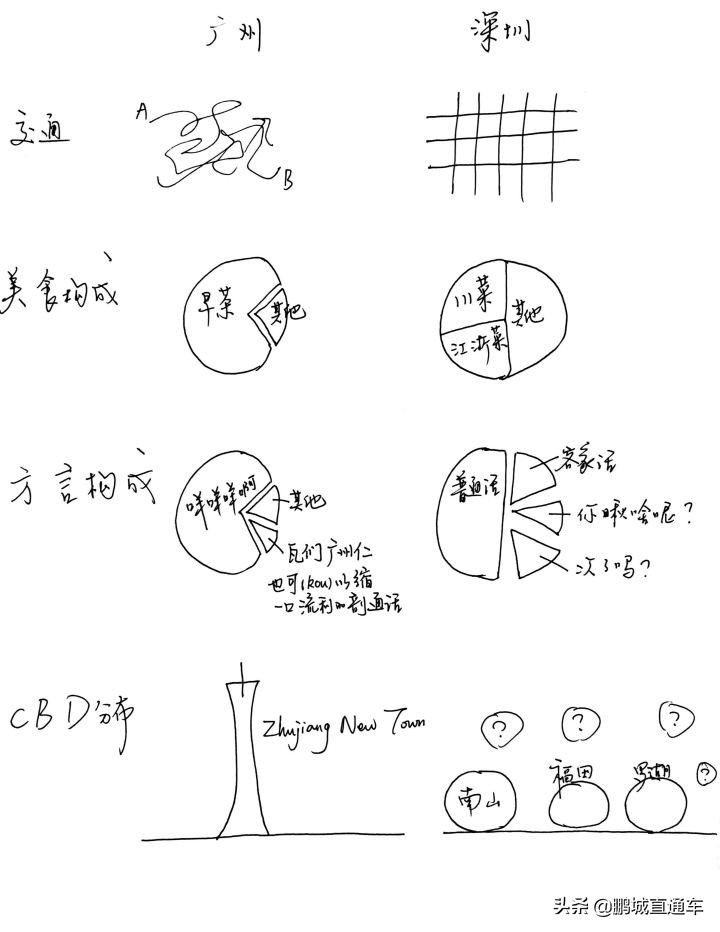 广州
深圳
交通
A
B
美食构成
早茶
其他
川菜
江浙菜
其他
方言构成
咩咩咩啊
其他
瓦们广州仁
也可(kou)以缩
一口流利的剖通话
普通话
客家话
你瞅啥呢？
次了吗？
CBD分布
Zhujiang New Town
?
?
?
?
南山
福田
罗湖
头条 @鹏城直通车